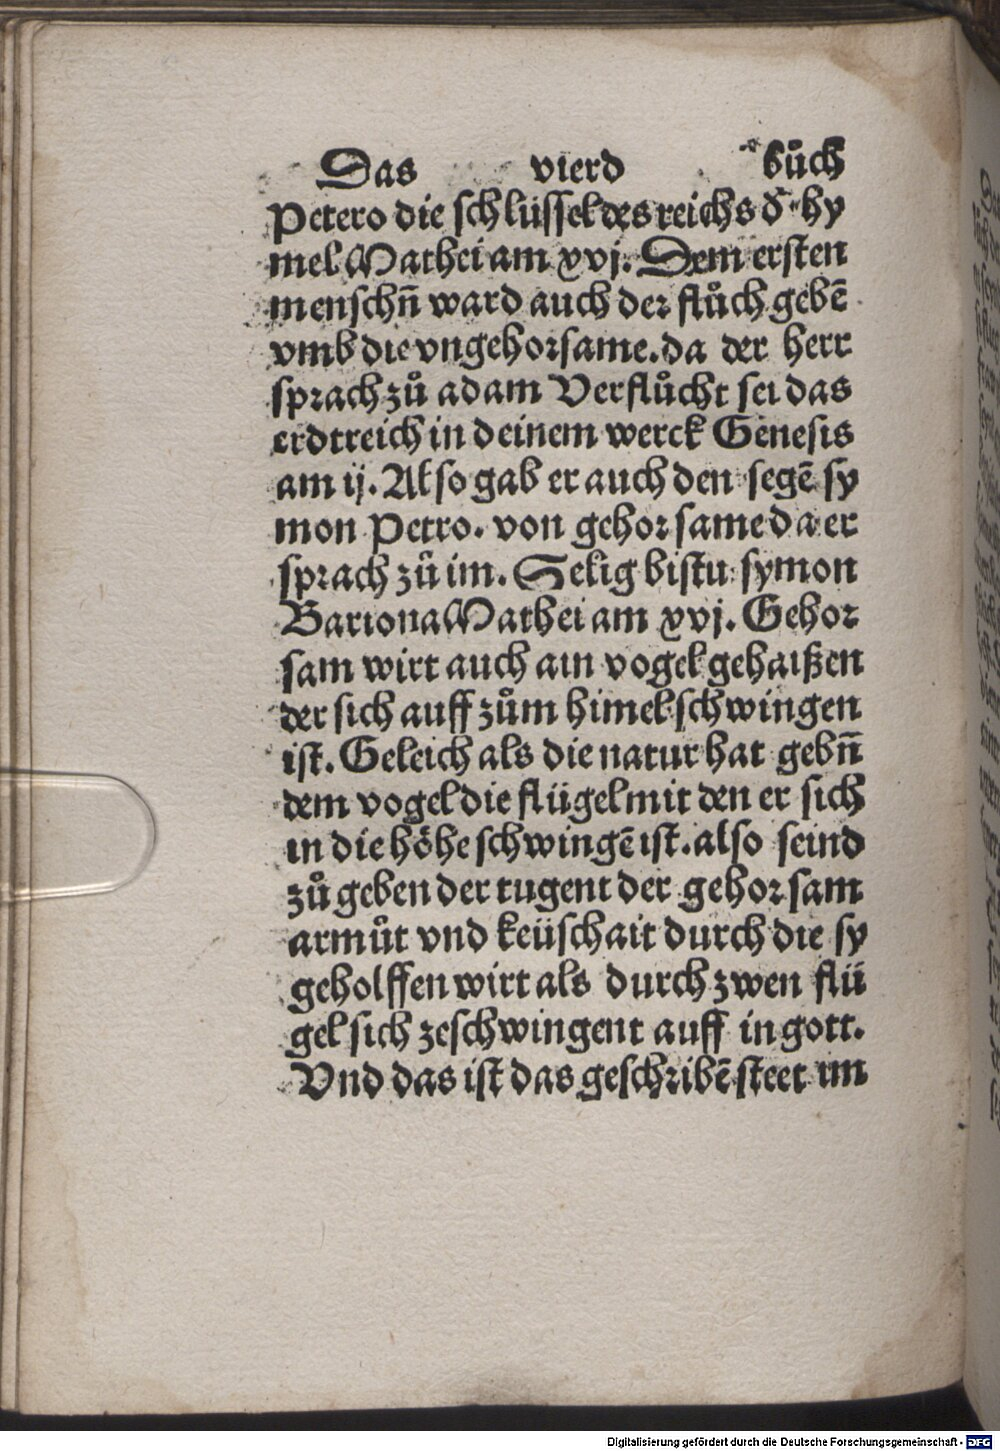 Das vierd bůch
Petero die schlüssel des reichs d̕ hy
mel Mathei am xvj. Dem ersten
menschn̄ ward auch der flůch gebē
vmb die vngehorsame. da der herr
sprach zů adam Verflůcht sei das
erdtreich in deinem werck Genesis
am ij. Also gab er auch den segē sy
mon Petro. von gehorsame da er
sprach zů im. Selig bistu symon
Bariona Mathei am xvj. Gehor
sam wirt auch ain vogel gehaißen
der sich auff zům himel schwingen
ist. Geleich als die natur hat gebn̄
dem vogel die flügel mit den er sich
in die höhe schwingē ist. also seind
zů geben der tugent der gehorsam
armůt vnd keüschait durch die sy
geholffen wirt als durch zwen flü
gel sich zeschwingent auff in gott.
Vnd das ist das geschribē steet im
Digitalisierung gefördert durch die Deutsche Forschungsgemeinschaft - DFG